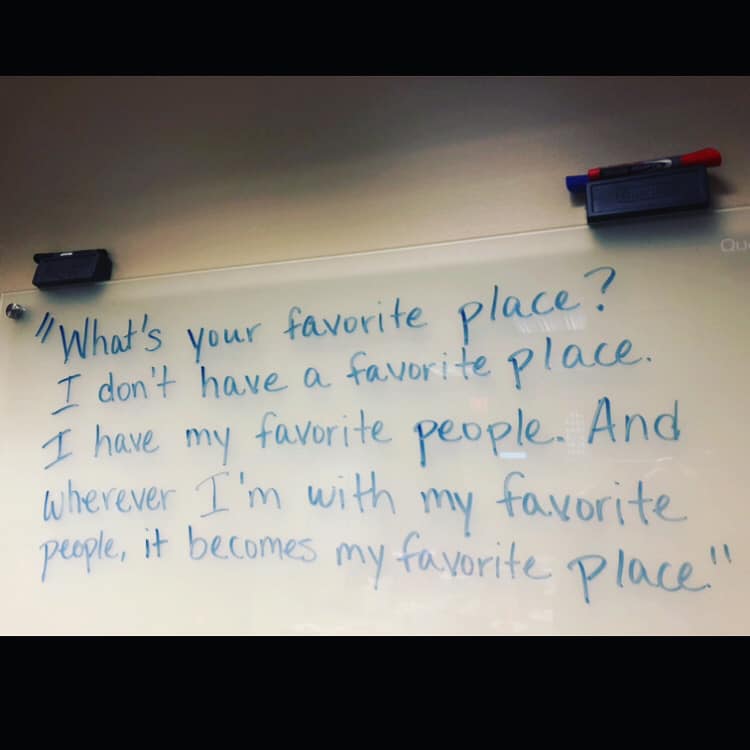 "What's your favorite place?
I don't have a favorite place.
I have my favorite people. And
wherever I'm with my favorite
people, it becomes my favorite place."